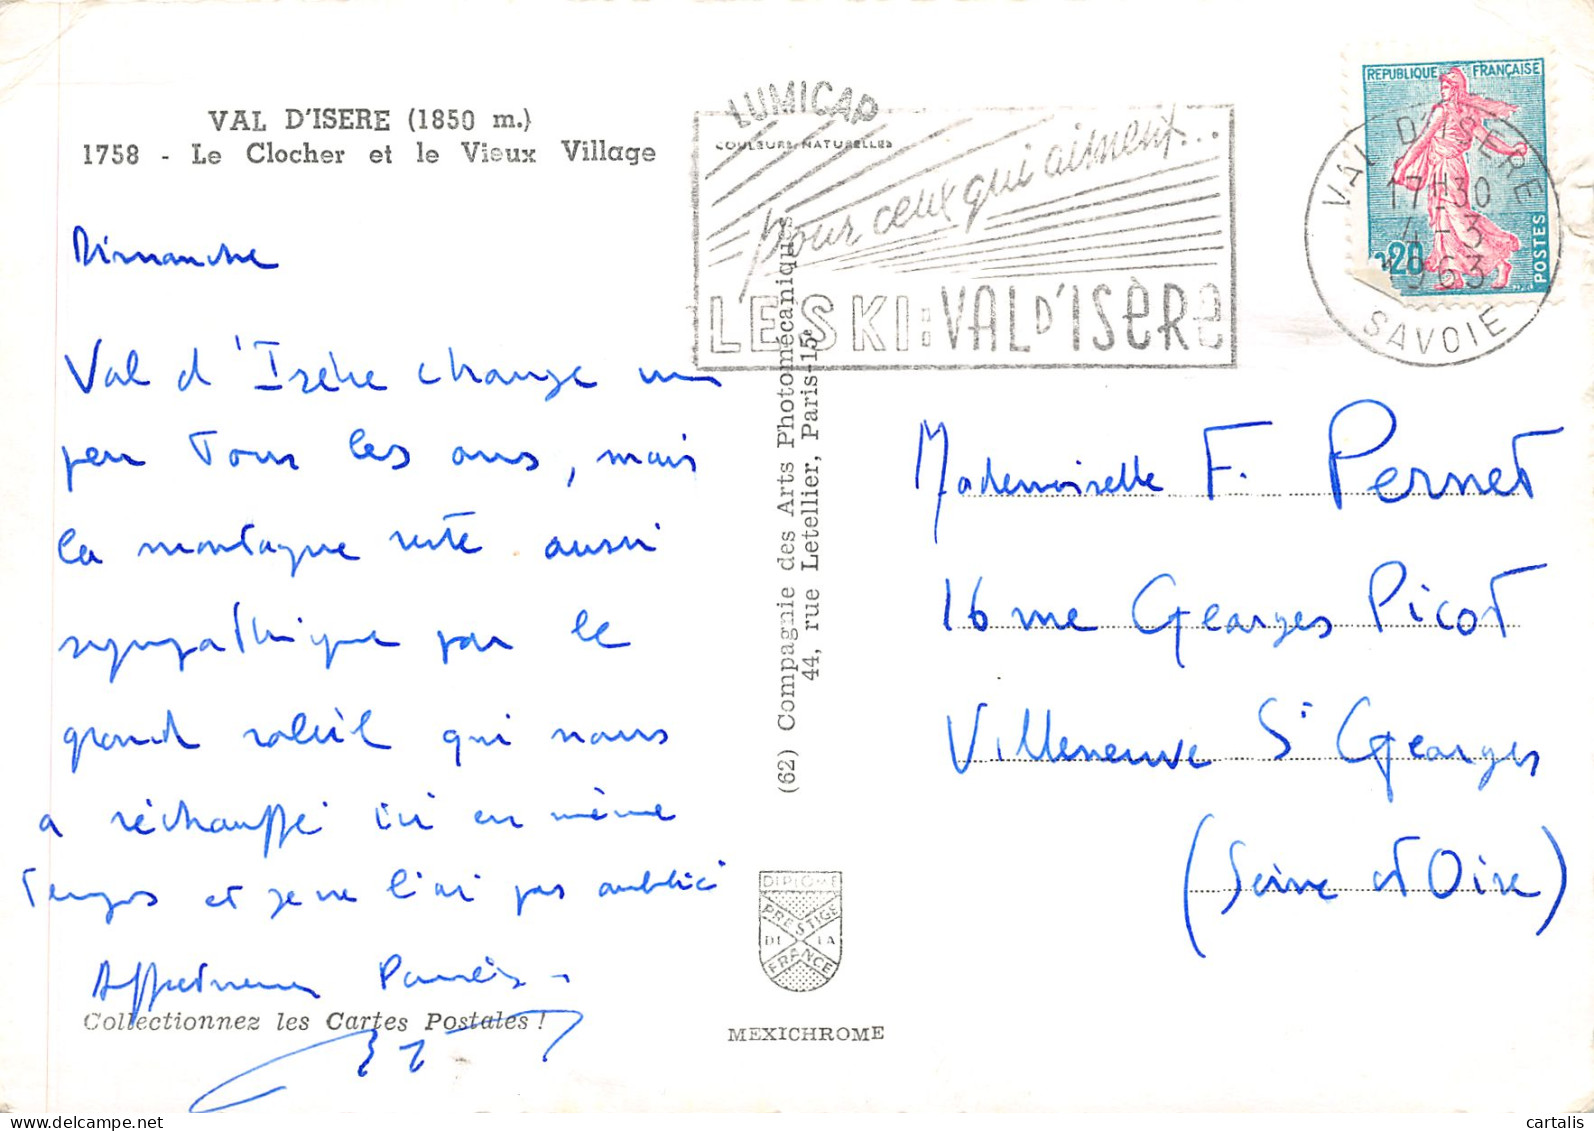 VAL D'ISERE (1850 m.)
1758 - Le Clocher et le Vieux Village
Dimanche
Val d'Isère change un
peu Tous les ans, mais
la montagne reste aussi
sympathique par le
grand soleil qui nous
a réchauffé ici en même
Temps et je ne l'ai pas oublié
Affectueuses Pensées
Collectionnez les Cartes Postales !
LUMICAP
COULEURS NATURELLES
pour ceux qui aiment...
LE SKI : VAL D'ISÈRE
(62) Compagnie des Arts Photomécaniques
44, rue Letellier, Paris-15e
DIPLOME
PRESTIGE
DE LA
FRANCE
MEXICHROME
REPUBLIQUE FRANÇAISE
0,20
POSTES
VAL D'ISERE
17H30
4-3
1963
SAVOIE
Mademoiselle F. Pernet
16 rue Georges Picot
Villeneuve St Georges
(Seine et Oise)
cartalis